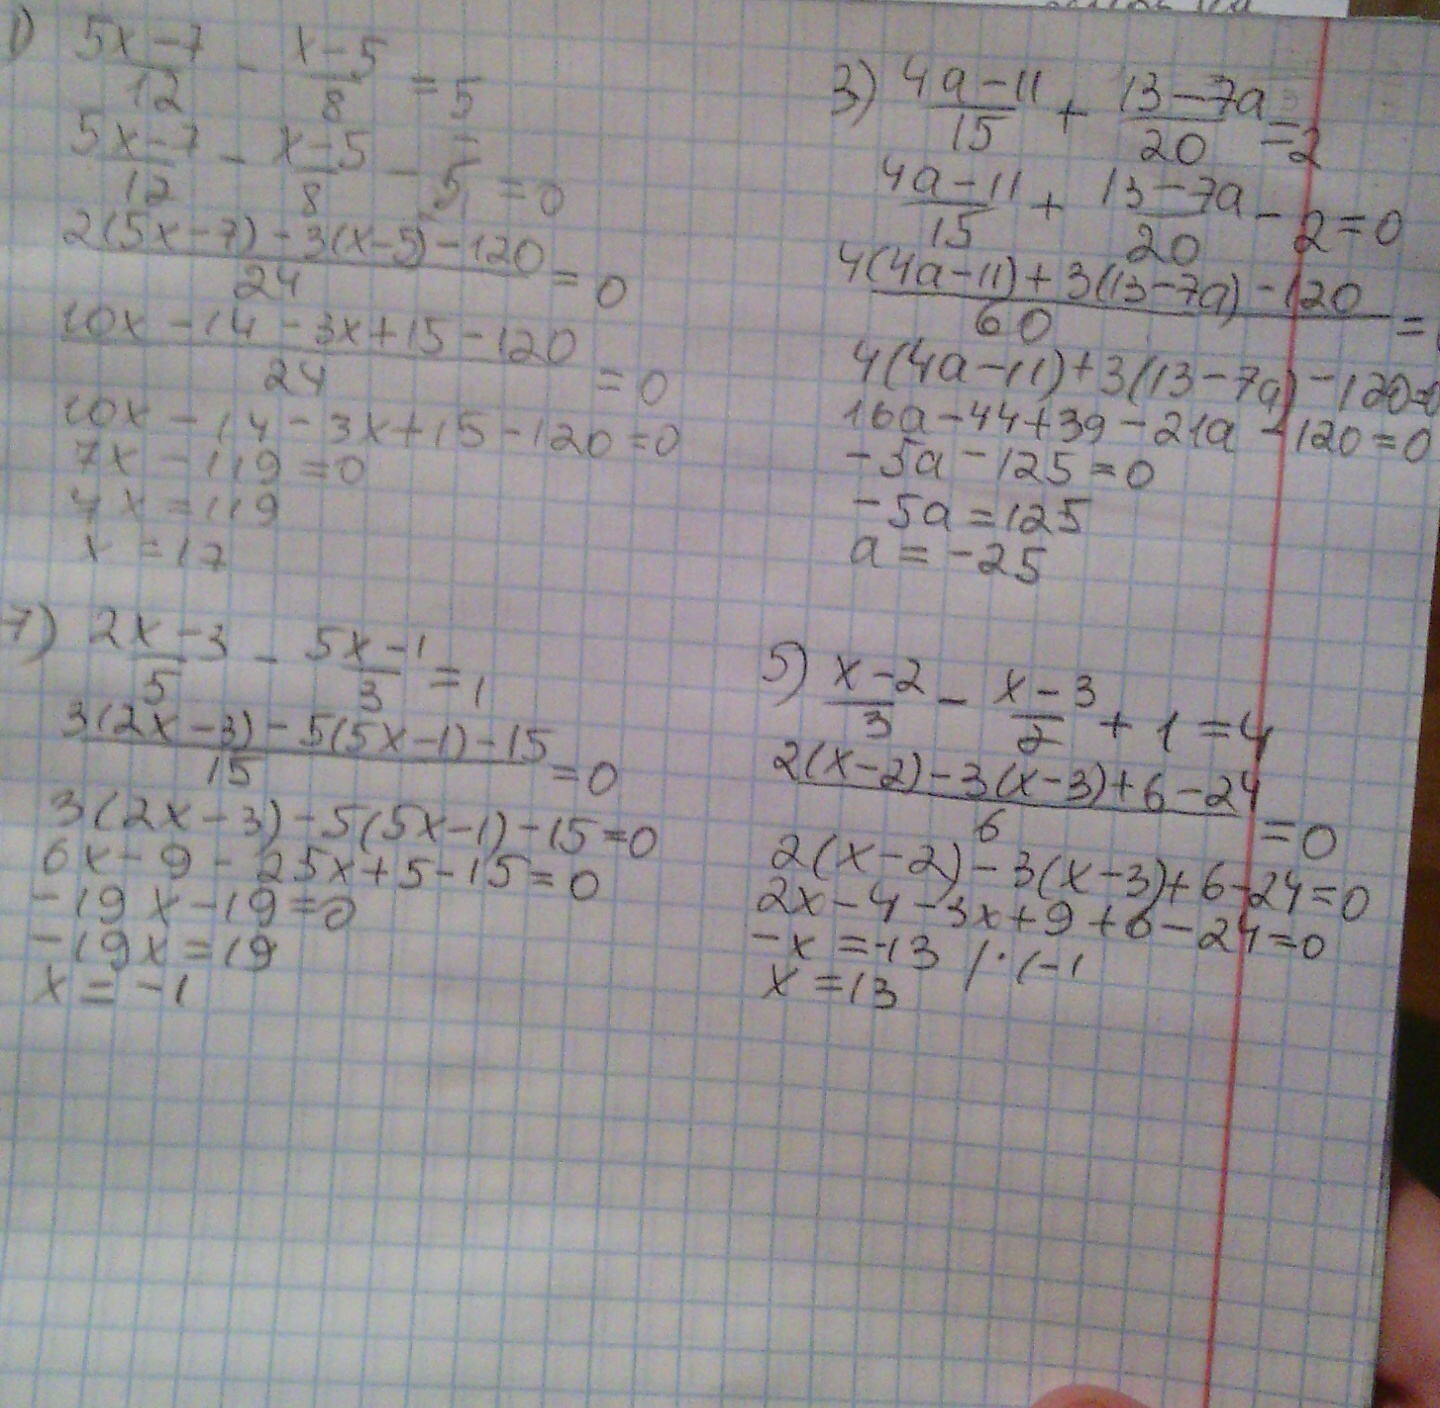 1) (5x-7)/12 - (x-5)/8 = 5
(5x-7)/12 - (x-5)/8 - 5 = 0
(2(5x-7)-3(x-5)-120)/24 = 0
(10x-14-3x+15-120)/24 = 0
10x-14-3x+15-120=0
7x-119=0
7x=119
x=17
3) (4a-11)/15 + (13-7a)/20 = 2
(4a-11)/15 + (13-7a)/20 - 2 = 0
(4(4a-11)+3(13-7a)-120)/60 =
4(4a-11)+3(13-7a)-120=0
16a-44+39-21a-120=0
-5a-125=0
-5a=125
a=-25
7) (2x-3)/5 - (5x-1)/3 = 1
(3(2x-3)-5(5x-1)-15)/15 = 0
3(2x-3)-5(5x-1)-15=0
6x-9-25x+5-15=0
-19x-19=0
-19x=19
x=-1
5) (x-2)/3 - (x-3)/2 + 1 = 4
(2(x-2)-3(x-3)+6-24)/6 = 0
2(x-2)-3(x-3)+6-24=0
2x-4-3x+9+6-24=0
-x=-13 /·(-1
x=13